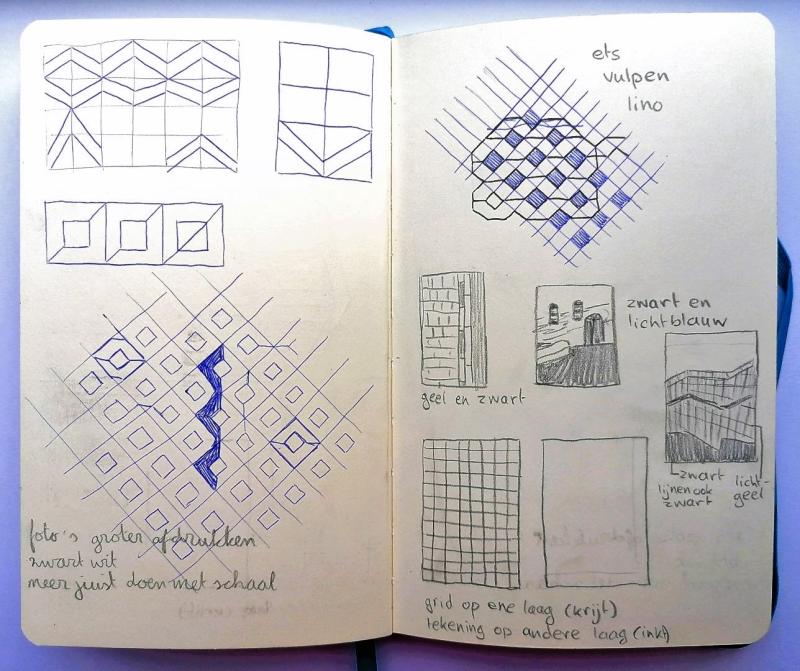 foto's groter afdrukken
zwart wit
meer juist doen met schaal
ets
vulpen
lino
zwart en
lichtblauw
geel en zwart
zwart
lijnen ook
zwart
licht-
geel
grid op ene laag (krijt)
tekening op andere laag (inkt)